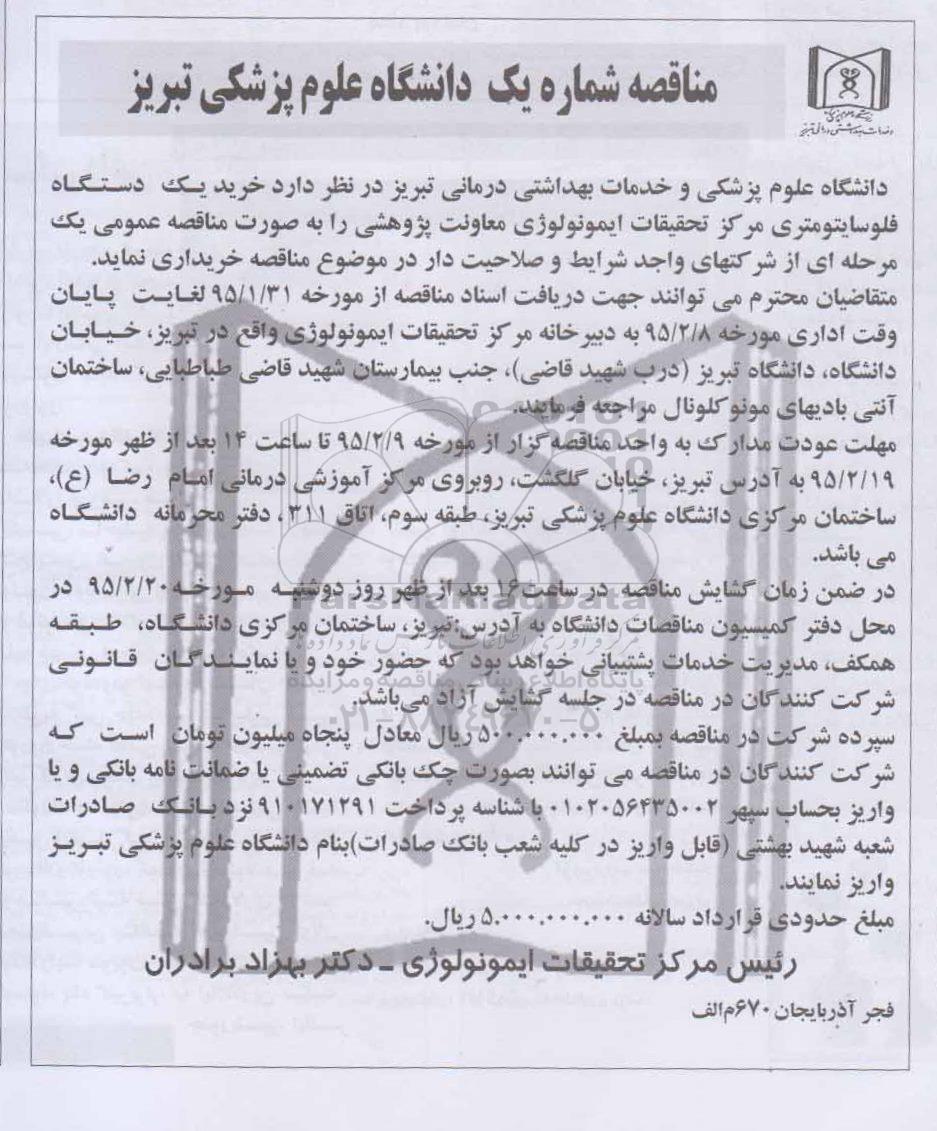 مناقصه شماره یک دانشگاه علوم پزشکی تبریز
دانشگاه علوم پزشکی و خدمات بهداشتی درمانی تبریز در نظر دارد خرید یک دستگاه
فلوسایتومتری مرکز تحقیقات ایمونولوژی معاونت پژوهشی را به صورت مناقصه عمومی یک
مرحله ای از شرکتهای واجد شرایط و صلاحیت دار در موضوع مناقصه خریداری نماید.
متقاضیان محترم می توانند جهت دریافت اسناد مناقصه از مورخه ۹۵/۱/۳۱ لغایت پایان
وقت اداری مورخه ۹۵/۲/۸ به دبیرخانه مرکز تحقیقات ایمونولوژی واقع در تبریز، خیابان
دانشگاه، دانشگاه تبریز (درب شهید قاضی)، جنب بیمارستان شهید قاضی طباطبایی، ساختمان
آنتی بادیهای مونوکلونال مراجعه فرمایند.
مهلت عودت مدارک به واحد مناقصه گزار از مورخه ۹۵/۲/۹ تا ساعت ۱۴ بعد از ظهر مورخه
۹۵/۲/۱۹ به آدرس تبریز، خیابان گلگشت، روبروی مرکز آموزشی درمانی امام رضا (ع)،
ساختمان مرکزی دانشگاه علوم پزشکی تبریز، طبقه سوم، اتاق ۳۱۱، دفتر محرمانه دانشگاه
می باشد.
در ضمن زمان گشایش مناقصه در ساعت ۱۶ بعد از ظهر روز دوشنبه مورخه ۹۵/۲/۲۰ در
محل دفتر کمیسیون مناقصات دانشگاه به آدرس:تبریز، ساختمان مرکزی دانشگاه، طبقه
همکف، مدیریت خدمات پشتیبانی خواهد بود که حضور خود و یا نمایندگان قانونی
شرکت کنندگان در مناقصه در جلسه گشایش آزاد می‌باشد.
سپرده شرکت در مناقصه بمبلغ ۵۰۰.۰۰۰.۰۰۰ ریال معادل پنجاه میلیون تومان است که
شرکت کنندگان در مناقصه می توانند بصورت چک بانکی تضمینی یا ضمانت نامه بانکی و یا
واریز بحساب سپهر ۰۱۰۲۰۵۶۴۳۵۰۰۲ با شناسه پرداخت ۹۱۰۱۷۱۲۹۱ نزد بانک صادرات
شعبه شهید بهشتی (قابل واریز در کلیه شعب بانک صادرات)بنام دانشگاه علوم پزشکی تبریز
واریز نمایند.
مبلغ حدودی قرارداد سالانه ۵.۰۰۰.۰۰۰.۰۰۰ ریال.
رئیس مرکز تحقیقات ایمونولوژی ـ دکتر بهزاد برادران
فجر آذربایجان ۶۷۰م‌الف
ParsNamadData
پایگاه اطلاع رسانی مناقصه و مزایده
۰۲۱-۸۸۳۴۹۶۷۰-۵